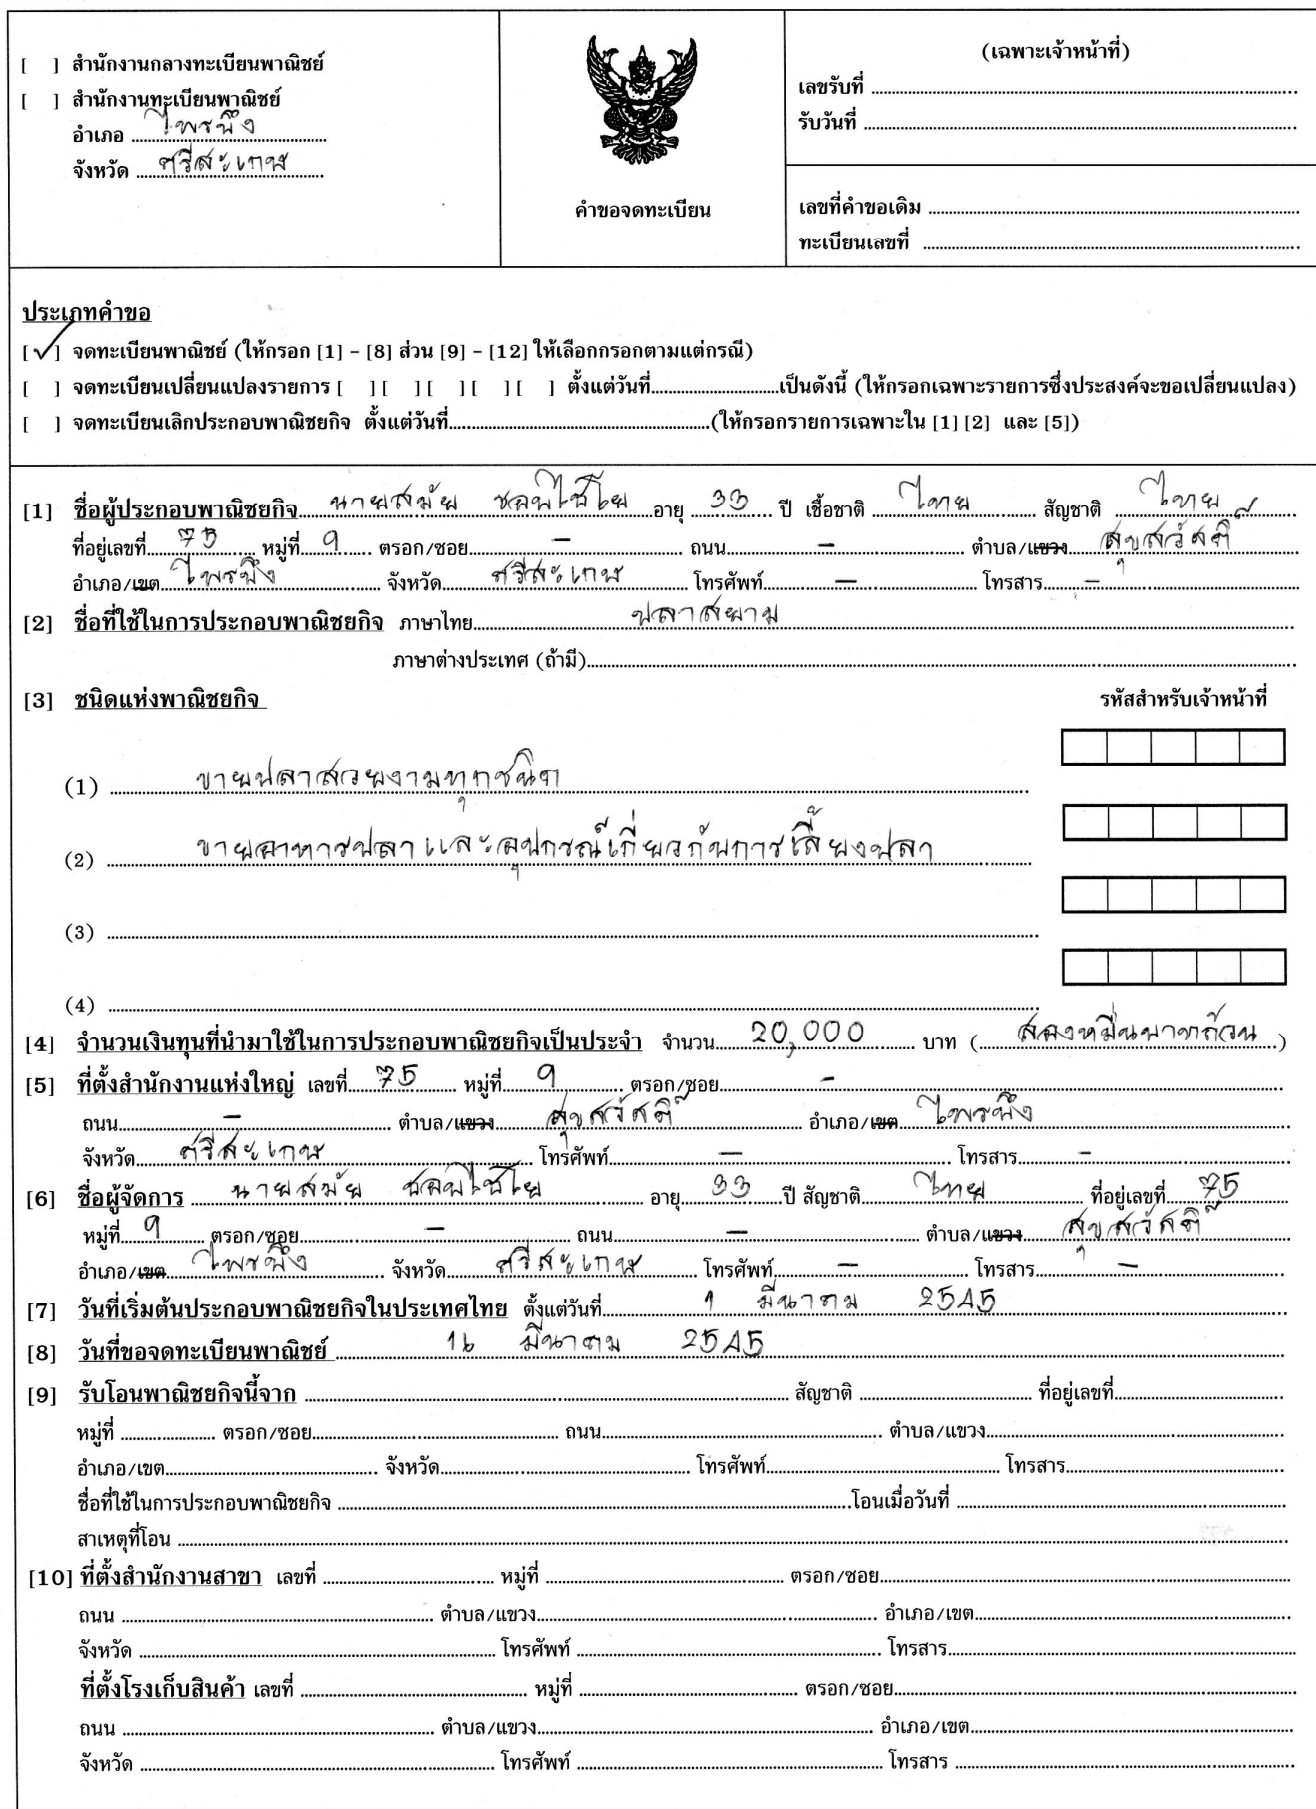 [ ] สำนักงานกลางทะเบียนพาณิชย์
[ ] สำนักงานทะเบียนพาณิชย์
อำเภอ ไพรบึง
จังหวัด ศรีสะเกษ
คำขอจดทะเบียน
(เฉพาะเจ้าหน้าที่)
เลขรับที่
รับวันที่
เลขที่คำขอเดิม
ทะเบียนเลขที่
ประเภทคำขอ
[✓] จดทะเบียนพาณิชย์ (ให้กรอก [1] - [8] ส่วน [9] - [12] ให้เลือกกรอกตามแต่กรณี)
[ ] จดทะเบียนเปลี่ยนแปลงรายการ [ ] [ ] [ ] [ ] ตั้งแต่วันที่ เป็นดังนี้ (ให้กรอกเฉพาะรายการซึ่งประสงค์จะขอเปลี่ยนแปลง)
[ ] จดทะเบียนเลิกประกอบพาณิชยกิจ ตั้งแต่วันที่ (ให้กรอกรายการเฉพาะใน [1] [2] และ [5])
[1] ชื่อผู้ประกอบพาณิชยกิจ นายสมัย ชอบไชโย อายุ 33 ปี เชื้อชาติ ไทย สัญชาติ ไทย
ที่อยู่เลขที่ 75 หมู่ที่ 9 ตรอก/ซอย - ถนน - ตำบล/แขวง สุขสวัสดิ์
อำเภอ/เขต ไพรบึง จังหวัด ศรีสะเกษ โทรศัพท์ - โทรสาร -
[2] ชื่อที่ใช้ในการประกอบพาณิชยกิจ ภาษาไทย ปลาสยาม
ภาษาต่างประเทศ (ถ้ามี)
[3] ชนิดแห่งพาณิชยกิจ รหัสสำหรับเจ้าหน้าที่
(1) ขายปลาสวยงามทุกชนิด
(2) ขายอาหารปลาและอุปกรณ์เกี่ยวกับการเลี้ยงปลา
(3)
(4)
[4] จำนวนเงินทุนที่นำมาใช้ในการประกอบพาณิชยกิจเป็นประจำ จำนวน 20,000 บาท (สองหมื่นบาทถ้วน)
[5] ที่ตั้งสำนักงานแห่งใหญ่ เลขที่ 75 หมู่ที่ 9 ตรอก/ซอย -
ถนน - ตำบล/แขวง สุขสวัสดิ์ อำเภอ/เขต ไพรบึง
จังหวัด ศรีสะเกษ โทรศัพท์ - โทรสาร -
[6] ชื่อผู้จัดการ นายสมัย ชอบไชโย อายุ 33 ปี สัญชาติ ไทย ที่อยู่เลขที่ 75
หมู่ที่ 9 ตรอก/ซอย - ถนน - ตำบล/แขวง สุขสวัสดิ์
อำเภอ/เขต ไพรบึง จังหวัด ศรีสะเกษ โทรศัพท์ - โทรสาร -
[7] วันที่เริ่มต้นประกอบพาณิชยกิจในประเทศไทย ตั้งแต่วันที่ 1 มีนาคม 2545
[8] วันที่ขอจดทะเบียนพาณิชย์ 16 มีนาคม 2545
[9] รับโอนพาณิชยกิจนี้จาก สัญชาติ ที่อยู่เลขที่
หมู่ที่ ตรอก/ซอย ถนน ตำบล/แขวง
อำเภอ/เขต จังหวัด โทรศัพท์ โทรสาร
ชื่อที่ใช้ในการประกอบพาณิชยกิจ โอนเมื่อวันที่
สาเหตุที่โอน
[10] ที่ตั้งสำนักงานสาขา เลขที่ หมู่ที่ ตรอก/ซอย
ถนน ตำบล/แขวง อำเภอ/เขต
จังหวัด โทรศัพท์ โทรสาร
ที่ตั้งโรงเก็บสินค้า เลขที่ หมู่ที่ ตรอก/ซอย
ถนน ตำบล/แขวง อำเภอ/เขต
จังหวัด โทรศัพท์ โทรสาร